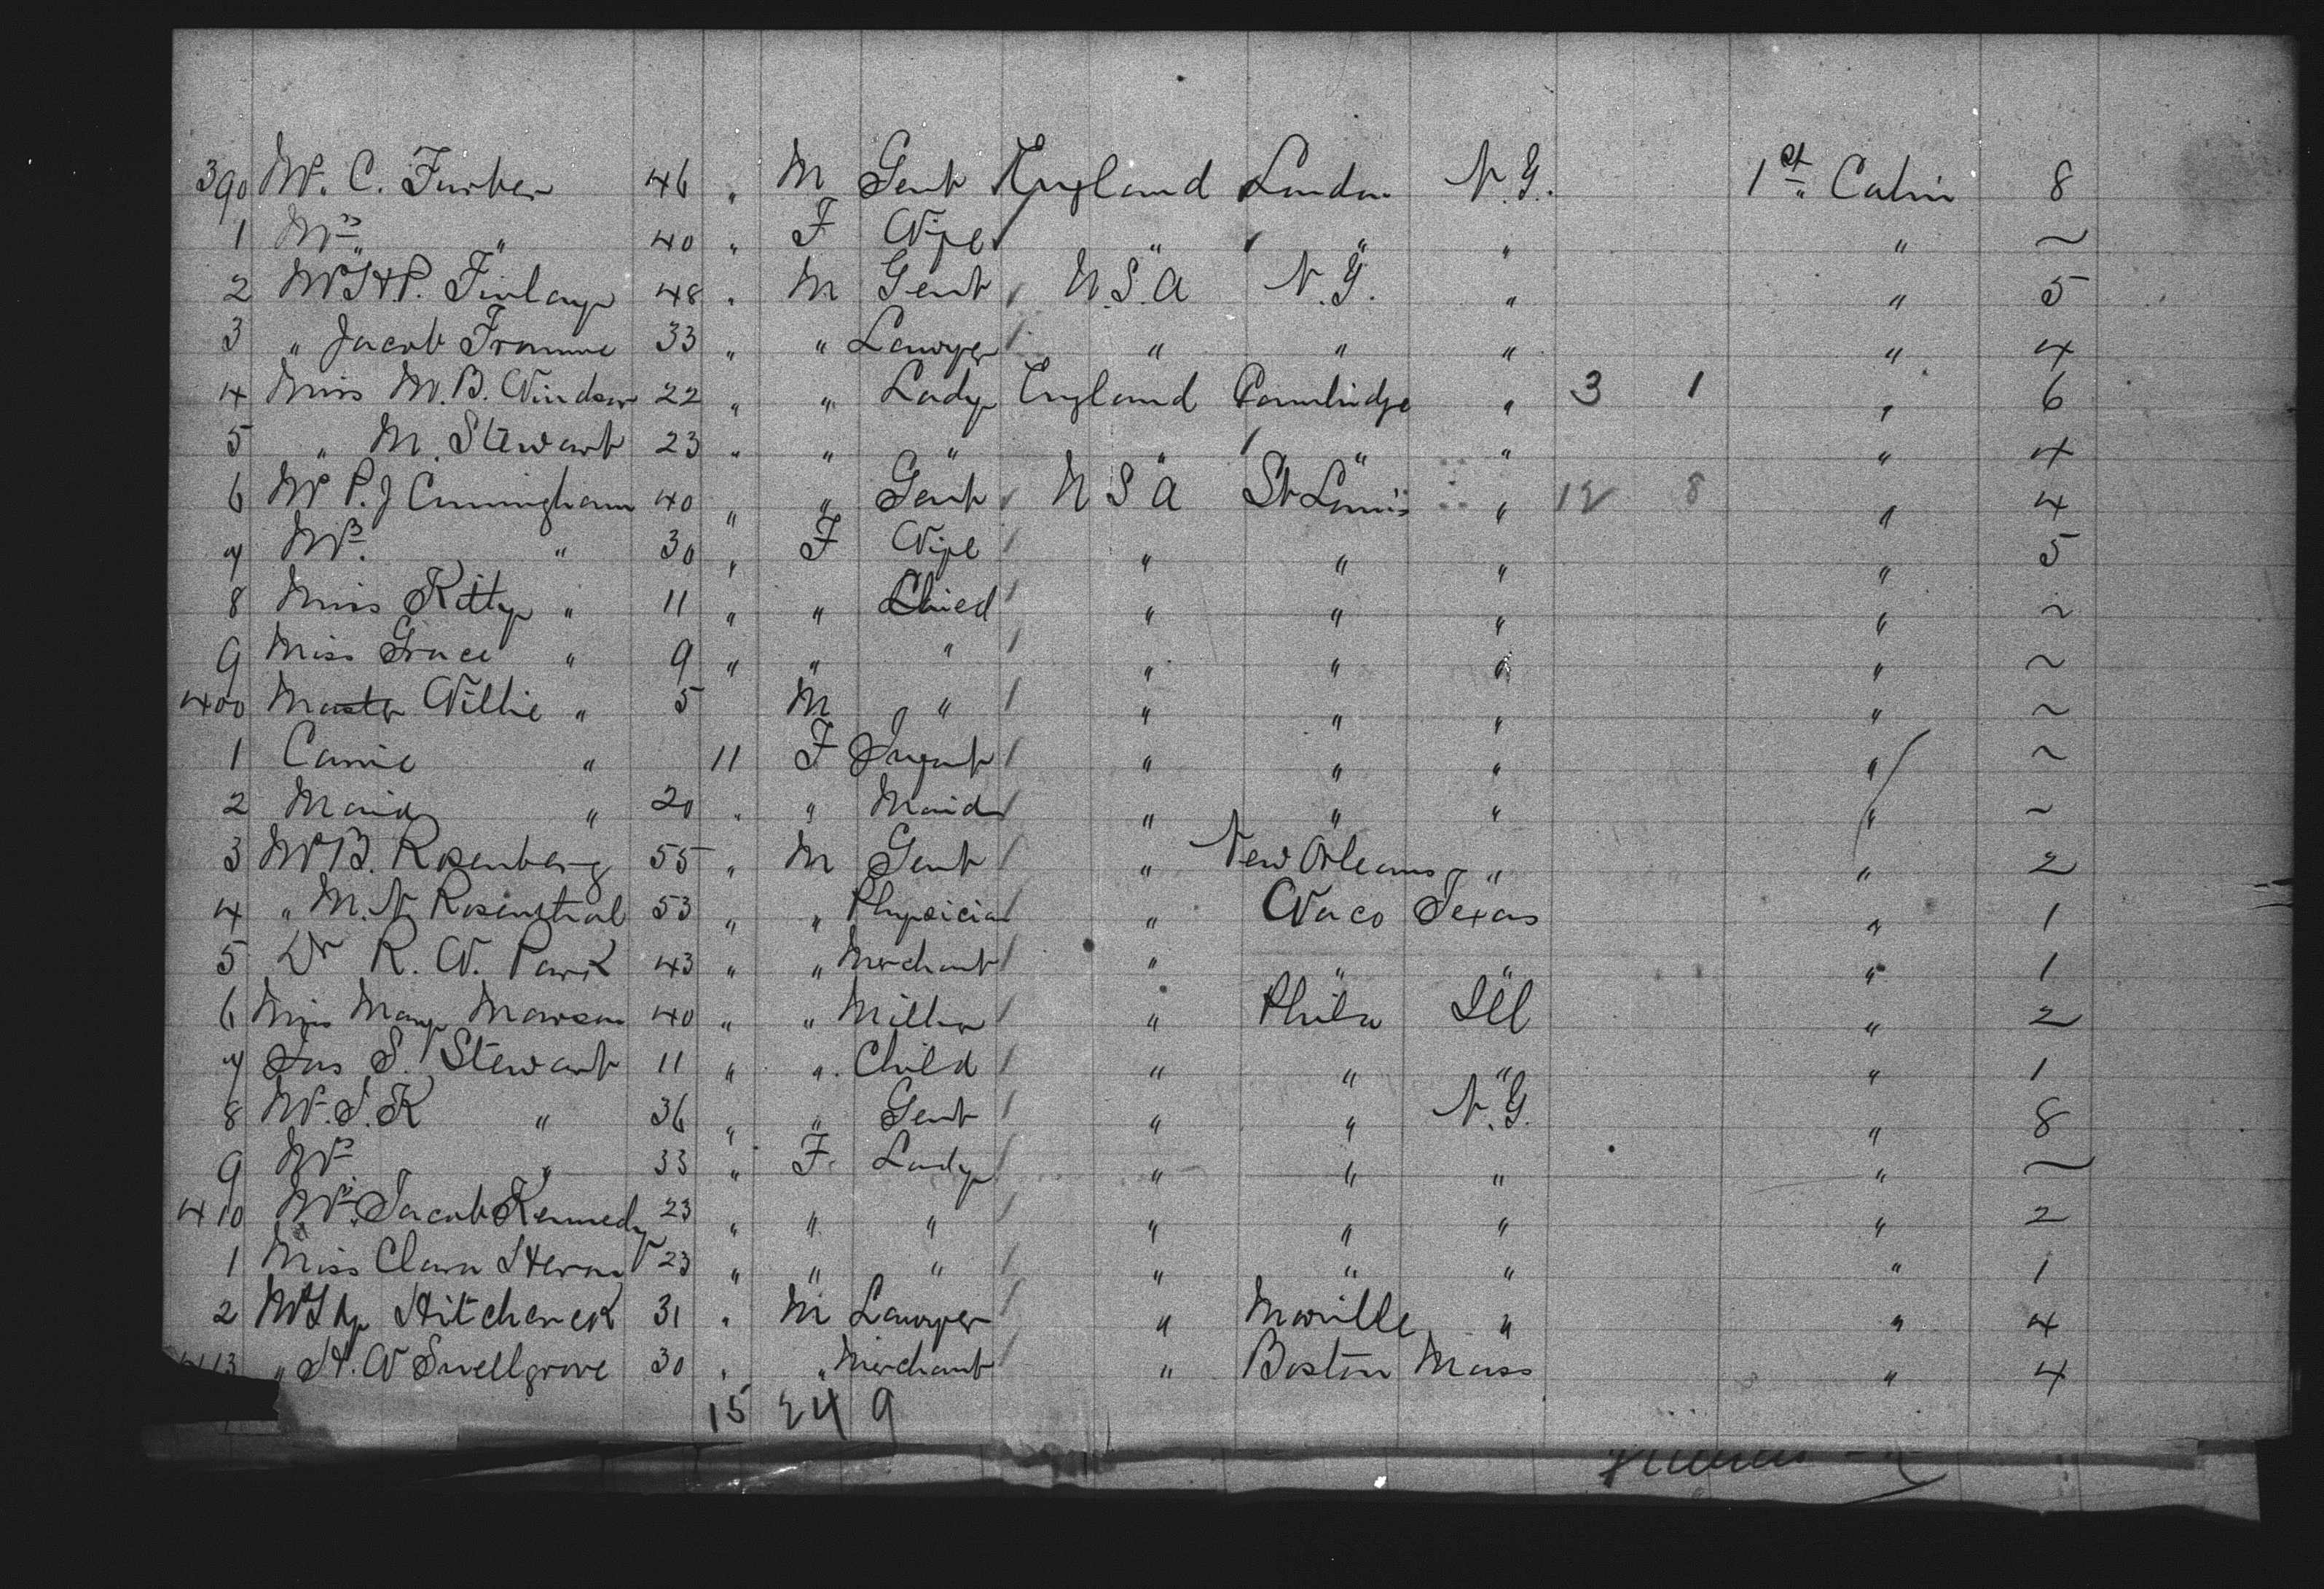 390 Mr. C. Furber 46 " M Gent England London N.Y. 1st Cabin 8
1 Mrs " " 40 " F Wife " " " " ~
2 Mr H.P. Finlay 48 " M Gent U.S.A N.Y. " " 5
3 " Jacob Fromme 33 " " Lawyer " " " " 4
4 Miss M.B. Windsor 22 " " Lady England Cambridge " 3 1 " 6
5 " M. Stewart 23 " " " " " " " 4
6 Mr P.J Cunningham 40 " " Gent U S A St Louis " 12 8 " 4
7 Mrs. " 30 " F Wife " " " " 5
8 Miss Kitty " 11 " " Child " " " " ~
9 Miss Grace " 9 " " " " " " " ~
400 Master Willie " 5 M " " " " " ~
1 Carrie " 11 F Infant " " " " ~
2 Maid " 20 " " Maid " " " " ~
3 Mr B. Rosenberg 55 " M Gent " New Orleans " " 2
4 " M. N. Rosenthal 53 " " Physician " Waco Texas " 1
5 Dr R. W. Park 43 " " Merchant " " " " 1
6 Miss Mary Mawson 40 " " " Phila Ill " 2
7 Jas S. Stewart 11 " " Child " " " " 1
8 Mr. S.K " 36 " " Gent " " N.Y. " 8
9 Mrs " 33 " F. Lady " " " " ~
410 Mrs. Jacob Kennedy 23 " " " " " " " 2
1 Miss Clara 23 " " " " " " " 1
2 Mr Hitchcock 31 " M Lawyer " " " 4
413 " H. W Swellgrove 30 " " Merchant " Boston Mass " 4
15 24 9